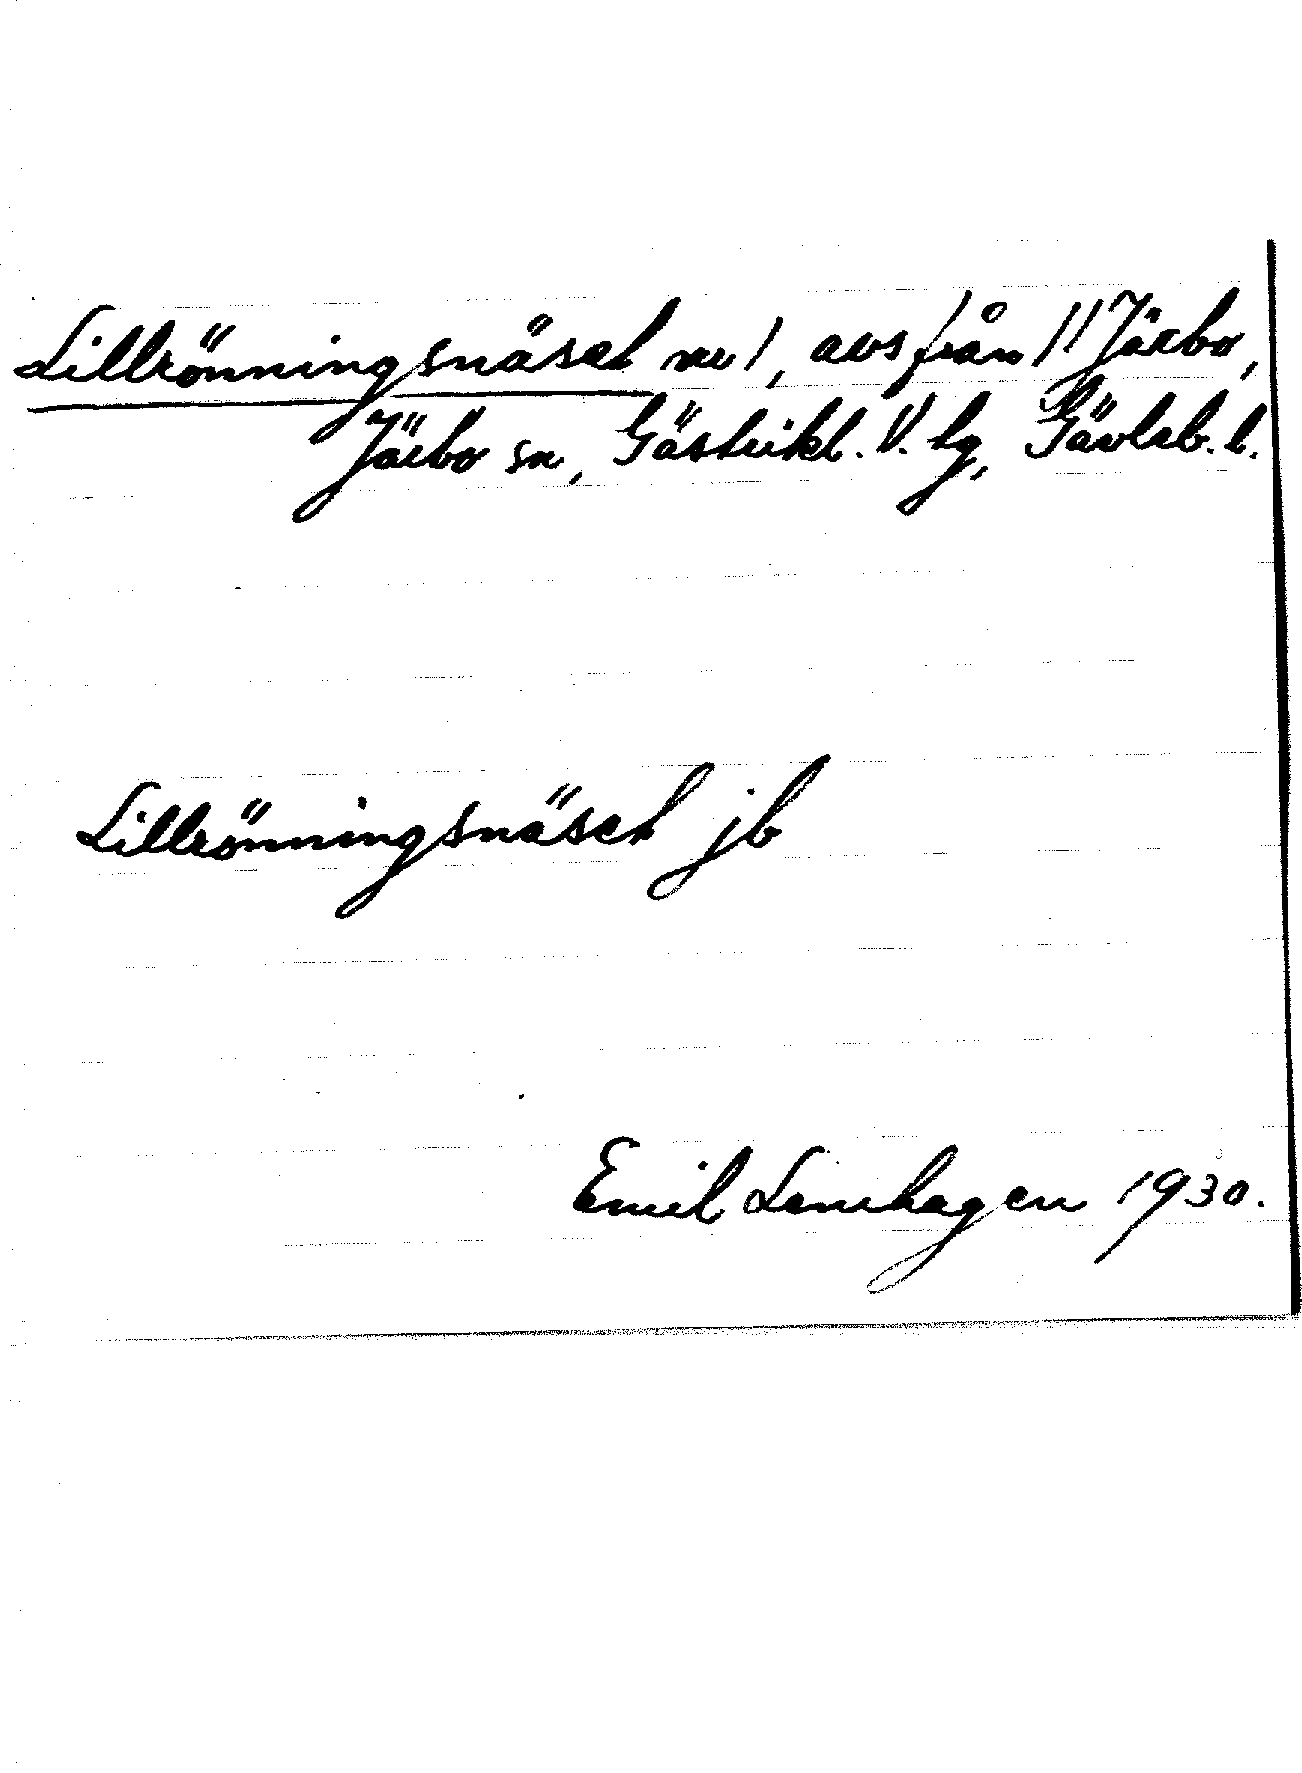 Lillrönningsnäset nr 1, avs från 11 Järbo,
Järbo sn, Gästrikl. V. tg, Gävleb. l.
Lillrönningsnäset jb
Emil Lennhagen 1930.